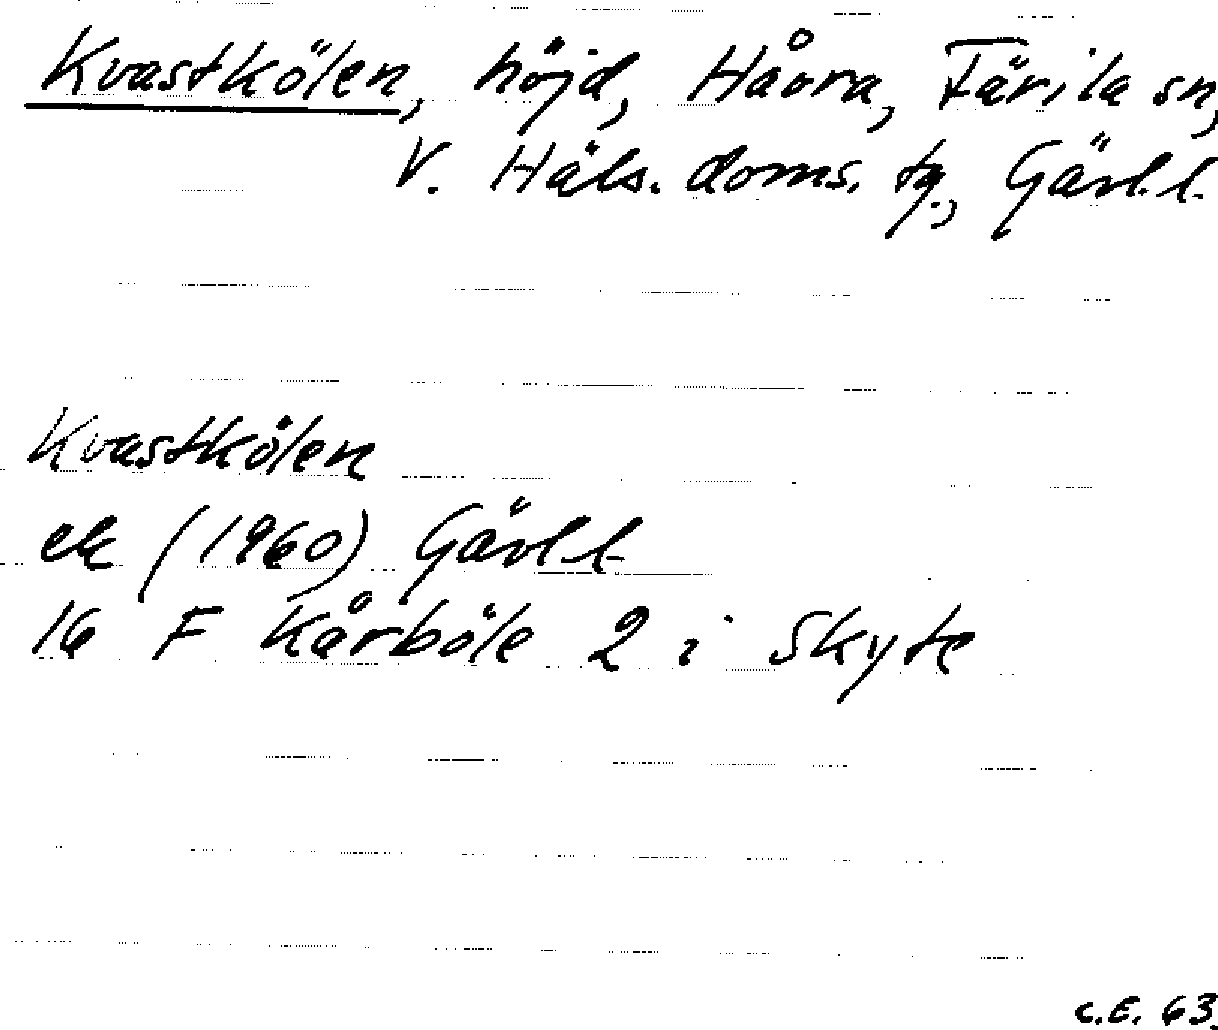 Kvastkölen, höjd, Håvra, Färila sn,
V. Häls. doms. tg., Gävl.l.
Kvastkölen
ek (1960) Gävl.l.
16 F Kårböle 2 i Skyte
C.E. 63